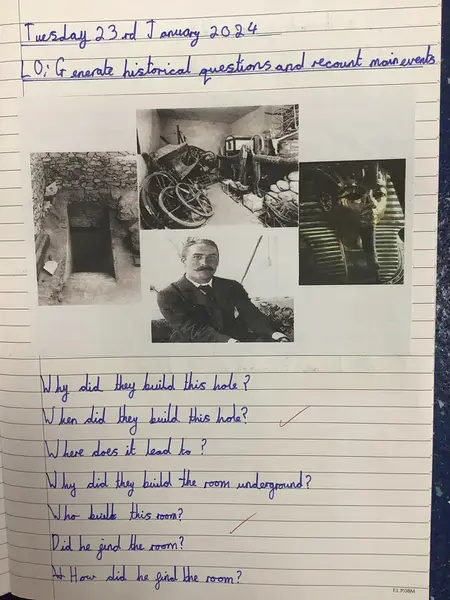 Tuesday 23rd January 2024
LO: Generate historical questions and recount main events
Why did they build this hole?
When did they build this hole?
Where does it lead to?
Why did they build the room underground?
Who built this room?
Did he find the room?
How did he find the room?